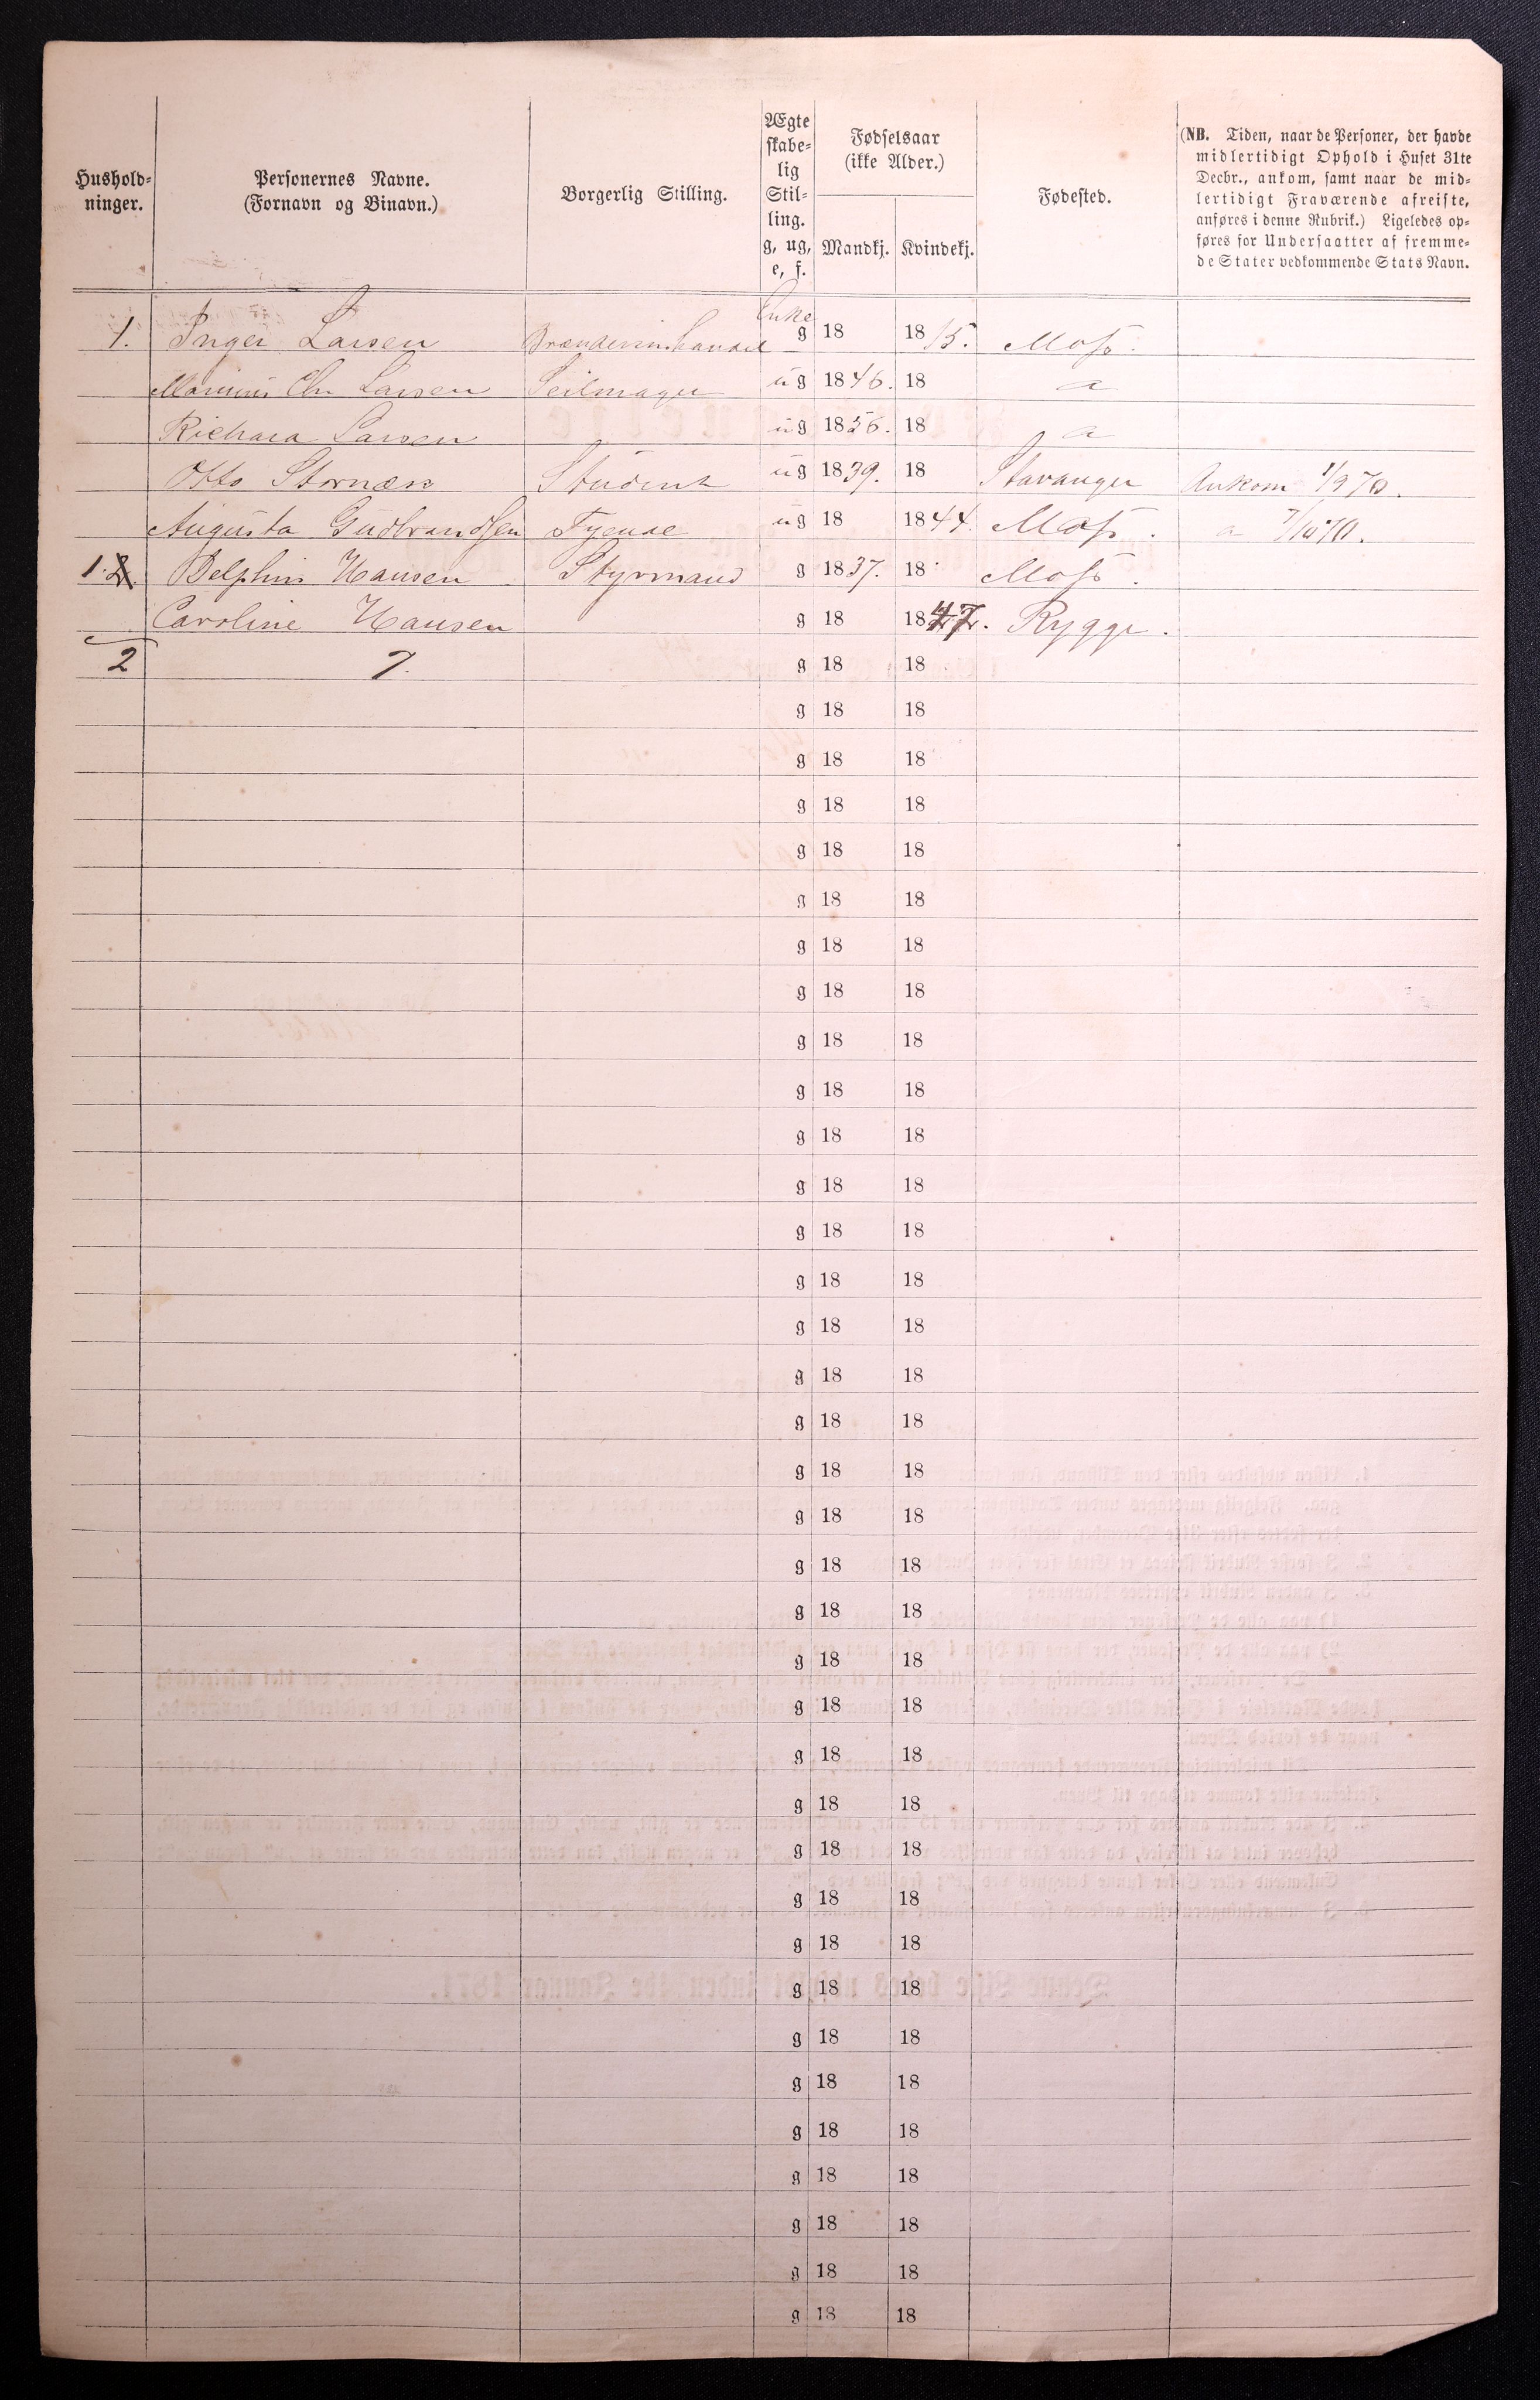 Hushold-
ninger.
Personernes Navne.
(Fornavn og Binavn.)
Borgerlig Stilling.
Ægte
skabe-
lig
Stil-
ling.
g, ug,
e, f.
Fødselsaar
(ikke Alder.)
Mandkj. Kvindekj.
Fødested.
(NB. Tiden, naar de Personer, der havde
midlertidigt Ophold i Huset 31te
Decbr., ankom, samt naar de mid-
lertidigt Fraværende afreiste,
anføres i denne Rubrik.) Ligeledes op-
føres for Undersaatter af fremme-
de Stater vedkommende Stats Navn.
1. Inger Larsen Brændevinshandel Enke g 18 1815. Moss.
Marinius Chr Larsen Seilmager ug 1846. 18 a
Richard Larsen ug 1856. 18 a
Otto Stornæs Student ug 1839. 18 Stavanger Ankom 1/9 70.
Augusta Gudbrandsen Tyende ug 18 1844. Moss. a 7/10 70.
1. 2. Delphin Hansen Styrmand g 1837. 18 Moss.
Caroline Hansen g 18 1847. Rygge.
2 7. g 18 18
g 18 18
g 18 18
g 18 18
g 18 18
g 18 18
g 18 18
g 18 18
g 18 18
g 18 18
g 18 18
g 18 18
g 18 18
g 18 18
g 18 18
g 18 18
g 18 18
g 18 18
g 18 18
g 18 18
g 18 18
g 18 18
g 18 18
g 18 18
g 18 18
g 18 18
g 18 18
g 18 18
g 18 18
g 18 18
g 18 18
g 18 18
g 18 18
g 18 18
g 18 18
g 18 18